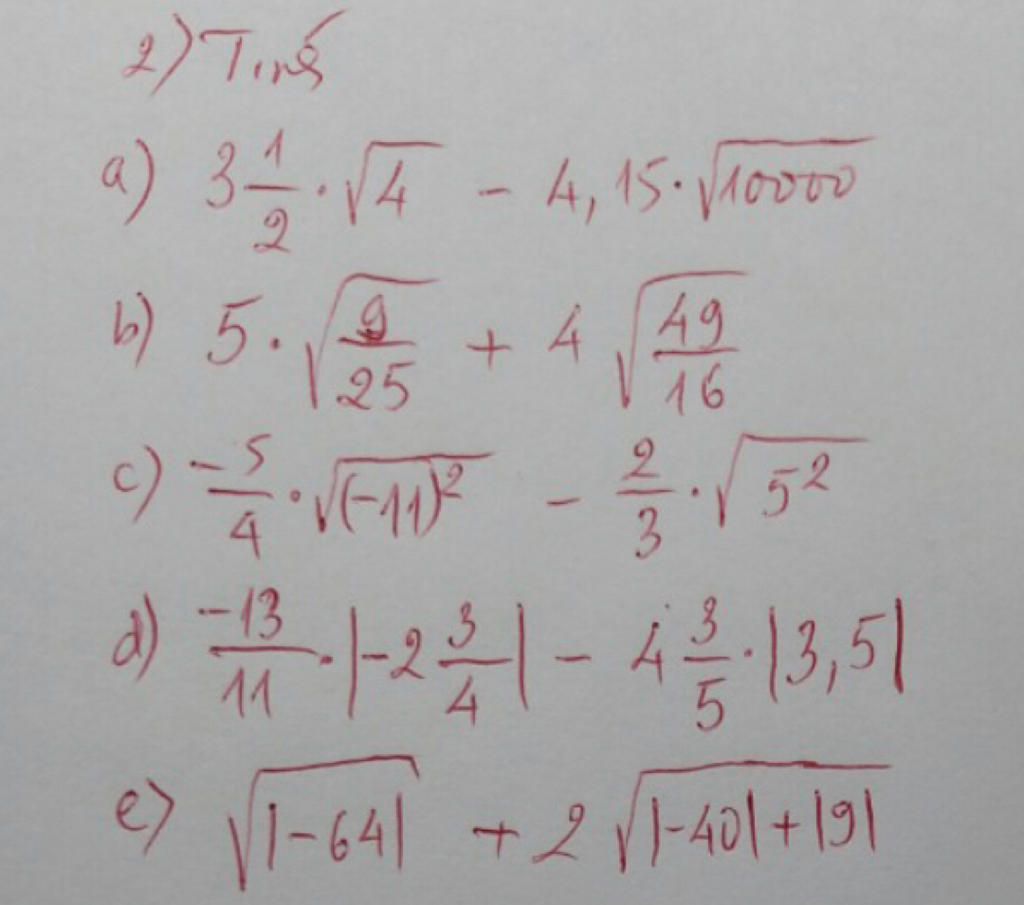 2) Tính
a) 3 1/2 · √4 - 4,15 · √10000
b) 5 · √(9/25) + 4 √(49/16)
c) -5/4 · √(-11)² - 2/3 · √5²
d) -13/11 · |-2 3/4| - 4 3/5 · |3,5|
e) √|-64| + 2 √|-40|+|9|